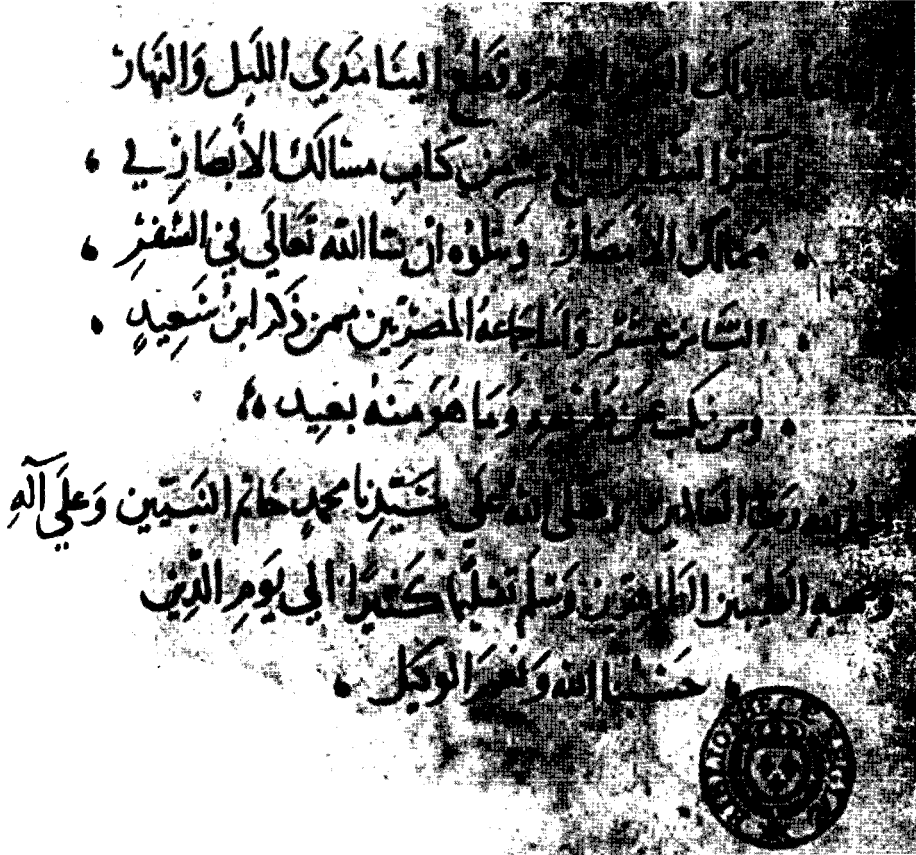 ذلك وقطع الينا مدي الليل والنهار
اخر السفر السابع عشر من كتاب مسالك الأبصار في
ممالك الأمصار ويتلوه ان شا الله تعالي في السفر
الثامن عشر واما جماعة المصريين ممن ذكر ابن سعيد
ومن نكب عن طريقه وما هو منه بعيد
الحمد لله رب العالمين وصلى الله علي سيدنا محمد خاتم النبيين وعلي آله
وصحبه الطيبين الطاهرين وسلم تسليما كثيرا الي يوم الدين
حسبنا الله ونعم الوكيل
BIBLIOTHECAE REGIAE